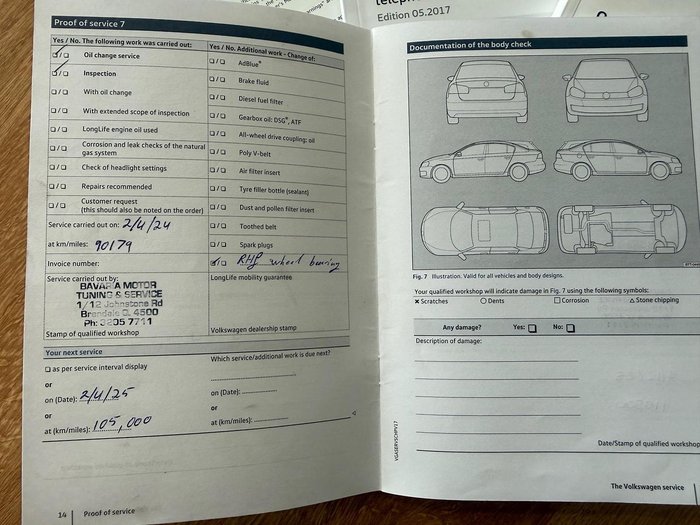 Edition 05.2017
Proof of service 7
Yes / No. The following work was carried out:
Oil change service
Inspection
With oil change
With extended scope of inspection
LongLife engine oil used
Corrosion and leak checks of the natural
gas system
Check of headlight settings
Repairs recommended
Customer request
(this should also be noted on the order)
Service carried out on: 2/4/24
at km/miles: 90179
Invoice number:
Service carried out by:
BAVARIA MOTOR
TUNING & SERVICE
1/12 Johnstone Rd
Brendale Q. 4500
Ph: 3205 7711
Stamp of qualified workshop
Yes / No. Additional work – Change of:
AdBlue®
Brake fluid
Diesel fuel filter
Gearbox oil: DSG®, ATF
All-wheel drive coupling: oil
Poly V-belt
Air filter insert
Tyre filler bottle (sealant)
Dust and pollen filter insert
Toothed belt
Spark plugs
RHF wheel bearing
LongLife mobility guarantee
Volkswagen dealership stamp
Your next service
as per service interval display
or
on (Date): 2/4/25
or
at (km/miles): 105,000
Which service/additional work is due next?
on (Date):
or
at (km/miles):
14 | Proof of service
Documentation of the body check
Fig. 7 Illustration. Valid for all vehicles and body designs.
Your qualified workshop will indicate damage in Fig. 7 using the following symbols:
× Scratches
○ Dents
□ Corrosion
△ Stone chipping
Any damage? Yes: No:
Description of damage:
Date/Stamp of qualified workshop
The Volkswagen service